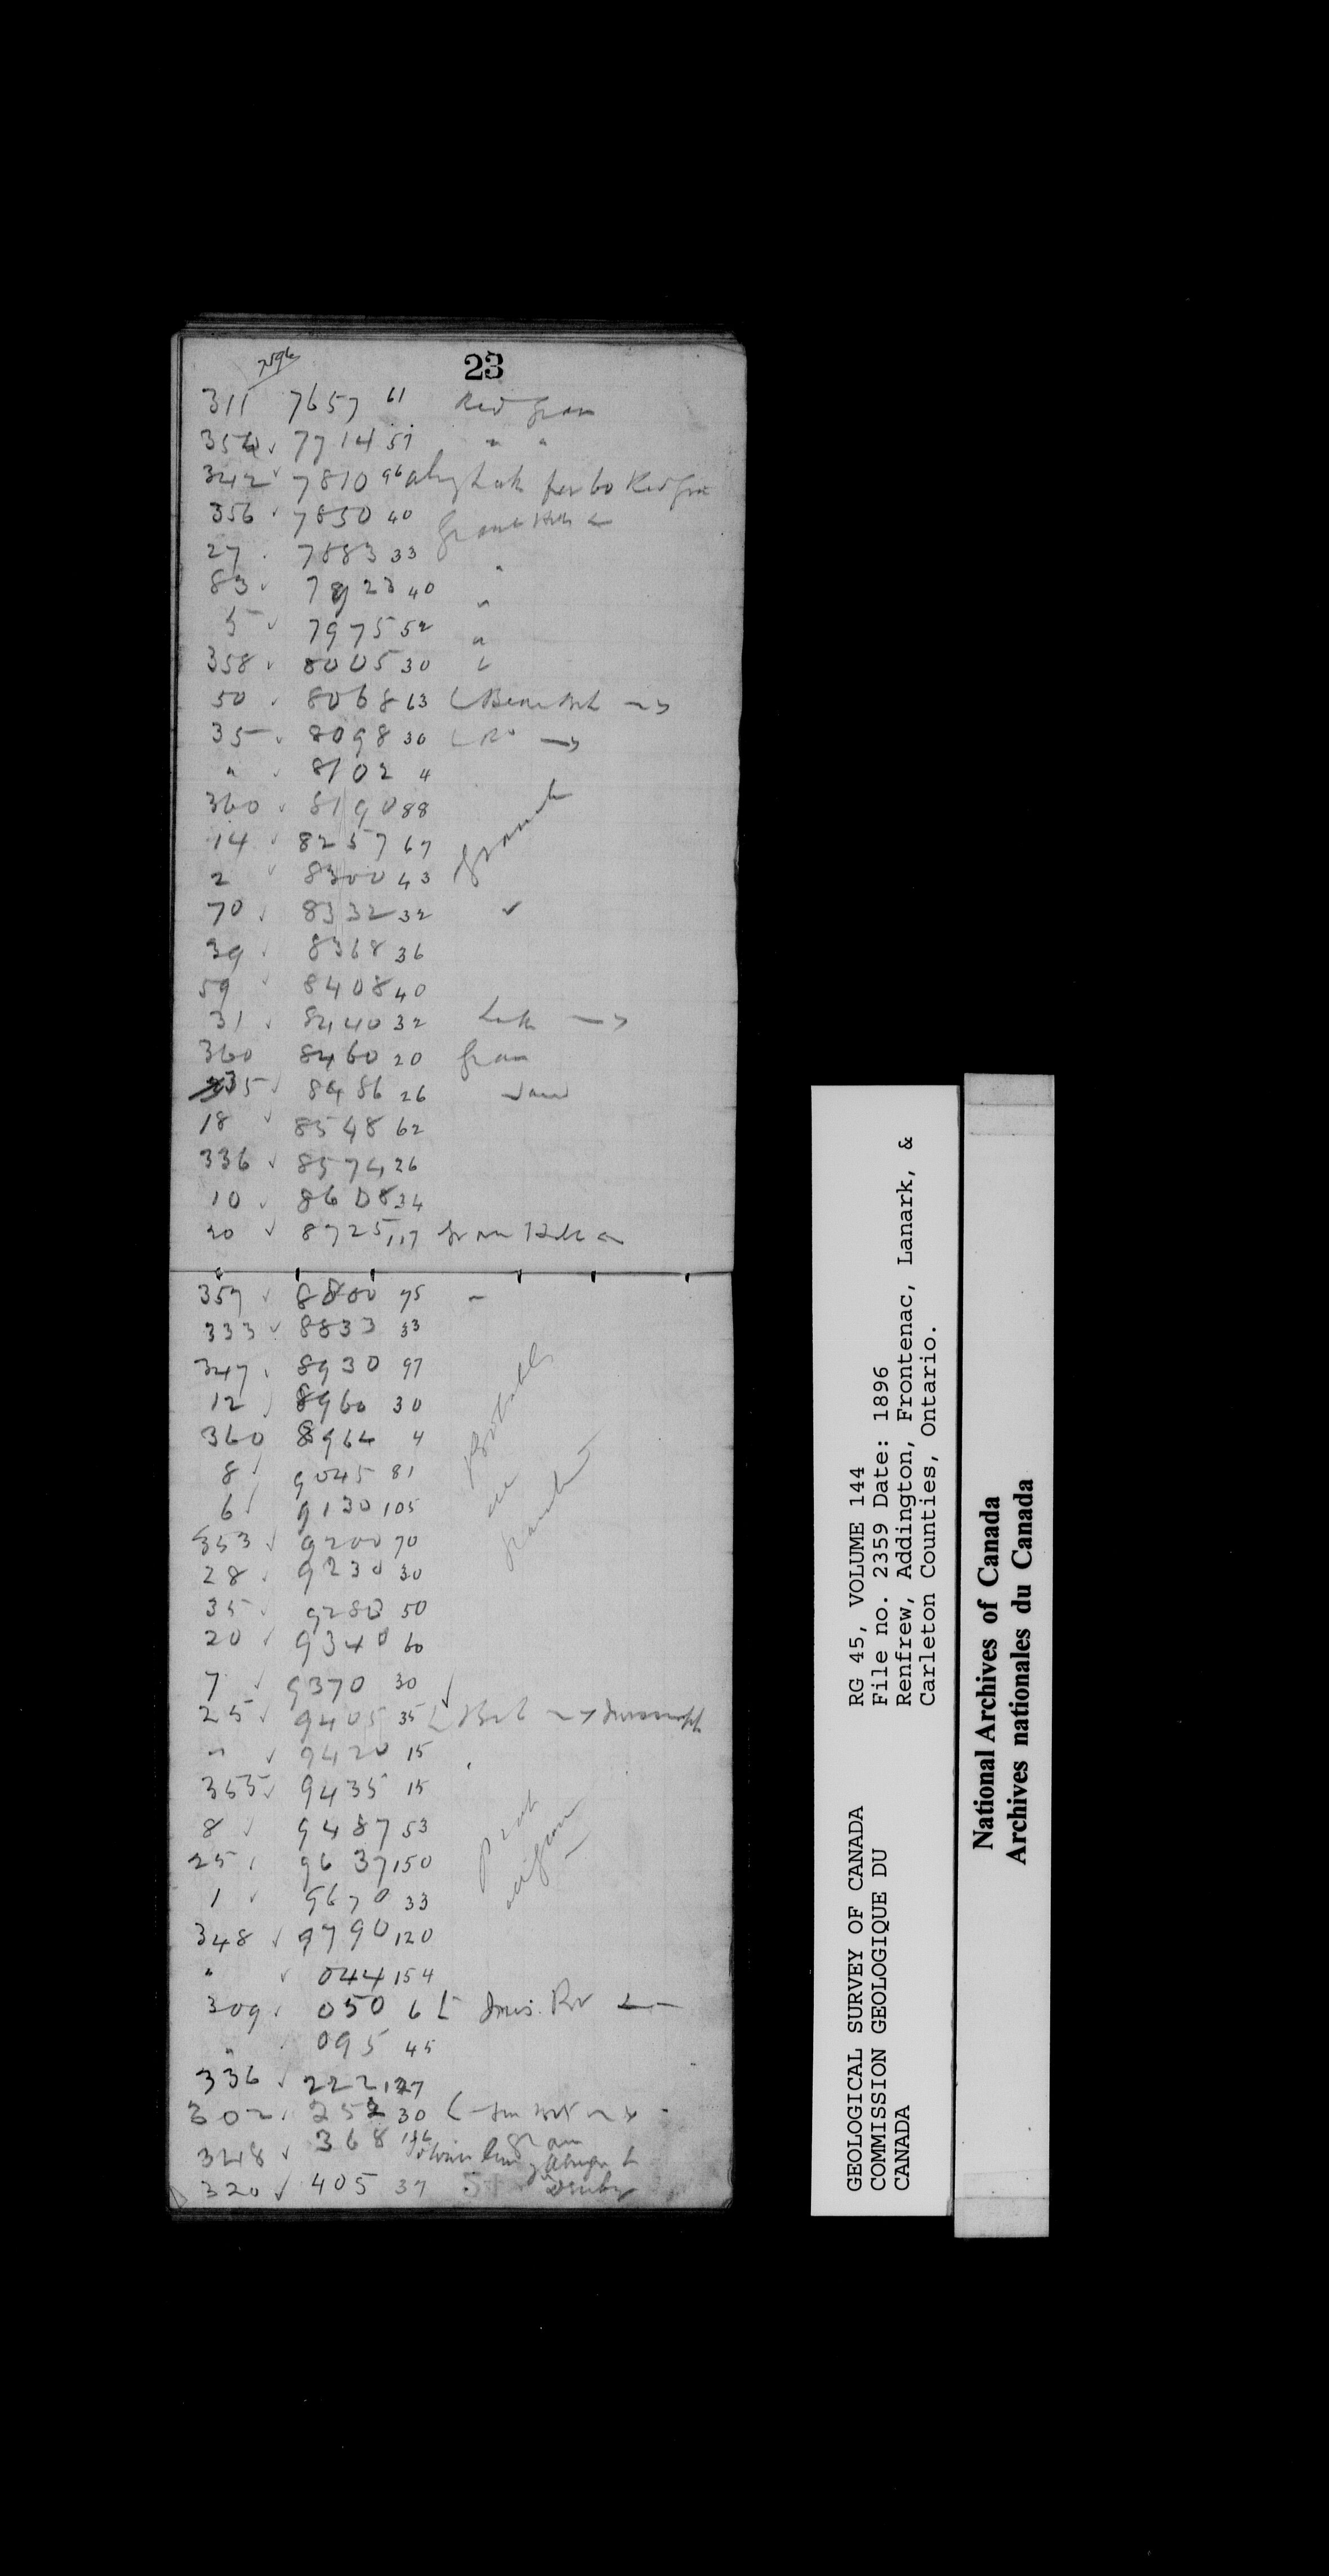 7596
23
311 7657 61 Red Gran
356 ✓ 7714 57 " "
342 ✓ 7810 96 along Lake for 60 Red Gra
356 ✓ 7850 40 Granite Hills ←
27 . 7883 33 "
83 ✓ 7923 40 "
5 ✓ 7975 52 "
358 ✓ 8005 30
50 ✓ 8068 63 →
35 ✓ 8098 30 →
" ✓ 8102 4
360 ✓ 8190 88
14 ✓ 8257 67 Granite
2 ✓ 8300 43
70 ✓ 8332 32 ✓
39 ✓ 8368 36
59 ✓ 8408 40
31 ✓ 8440 32 Lake →
360 8460 20 Gran
335 ✓ 8486 26
18 ✓ 8548 62
336 ✓ 8574 26
10 ✓ 8608 34
20 ✓ 8725 117 Gran Hills
357 ✓ 8800 75 "
333 ✓ 8833 33
347 ✓ 8930 97
12 ✓ 8960 30 Probably
360 8964 4 all
8 ✓ 9045 81 Granite
6 ✓ 9130 105
353 ✓ 9200 70
28 ✓ 9230 30
35 ✓ 9280 50
20 ✓ 9340 60
7 ✓ 9370 30 ✓
25 ✓ 9405 35 →
" ✓ 9420 15
355 ✓ 9435 15
8 ✓ 9487 53 Prob
25 ✓ 9637 150 all gran
1 ✓ 9670 33
348 ✓ 9790 120
" ✓ 044 154
309 ✓ 050 6 ←
" . 095 45
336 ✓ 222 127
302 ✓ 252 30
348 ✓ 368 116 gran
320 ✓ 405 37
GEOLOGICAL SURVEY OF CANADA
COMMISSION GEOLOGIQUE DU
CANADA
RG 45, VOLUME 144
File no. 2359 Date: 1896
Renfrew, Addington, Frontenac, Lanark, &
Carleton Counties, Ontario.
National Archives of Canada
Archives nationales du Canada